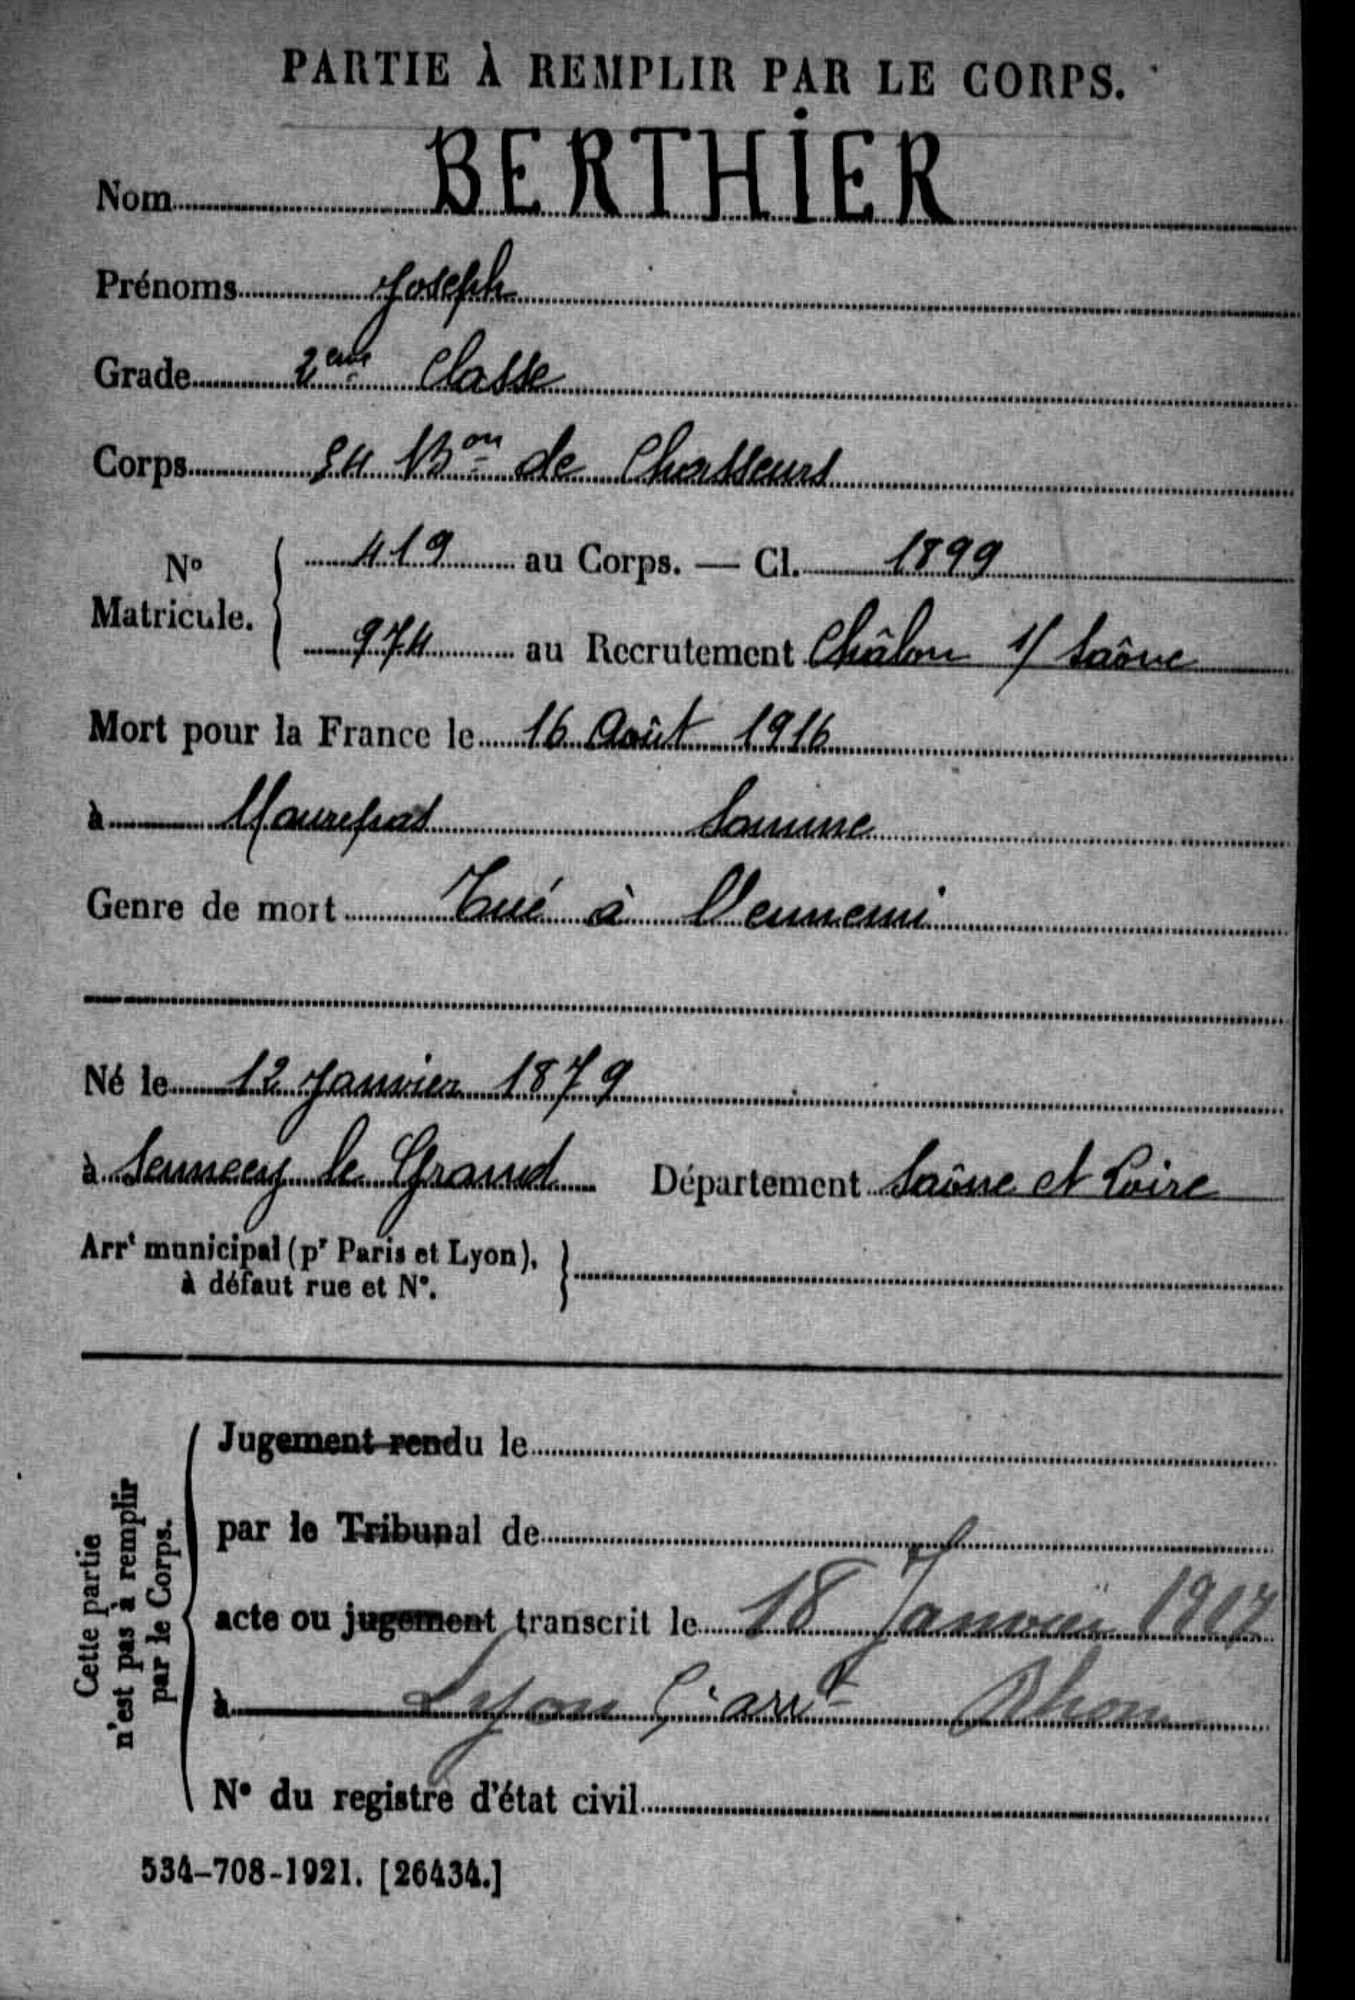 PARTIE À REMPLIR PAR LE CORPS.
Nom BERTHIER
Prénoms Joseph
Grade 2ème Classe
Corps 54 Bon de Chasseurs
No Matricule. 419 au Corps. — Cl. 1899
974 au Recrutement Châlon s/ Saône
Mort pour la France le 16 Août 1916
à Maurepas Somme
Genre de mort Tué à l'ennemi
Né le 12 Janvier 1879
à Sennecey le Grand Département Saône et Loire
Arrt municipal (pr Paris et Lyon),
à défaut rue et N°.
Cette partie
n'est pas à remplir
par le Corps.
Jugement rendu le
par le Tribunal de
acte ou jugement transcrit le 18 Janvier 1917
à Lyon arrt Rhône
N° du registre d'état civil
534-708-1921. [26434.]